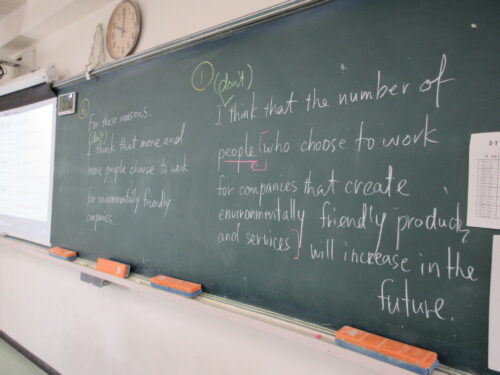 ① (don't)
I think that the number of
people [who choose to work
for companies that create
environmentally friendly products
and services] will increase in the
future.
②
For these reasons,
(don't)
I think that more and
more people choose to work
for environmentally friendly
companies